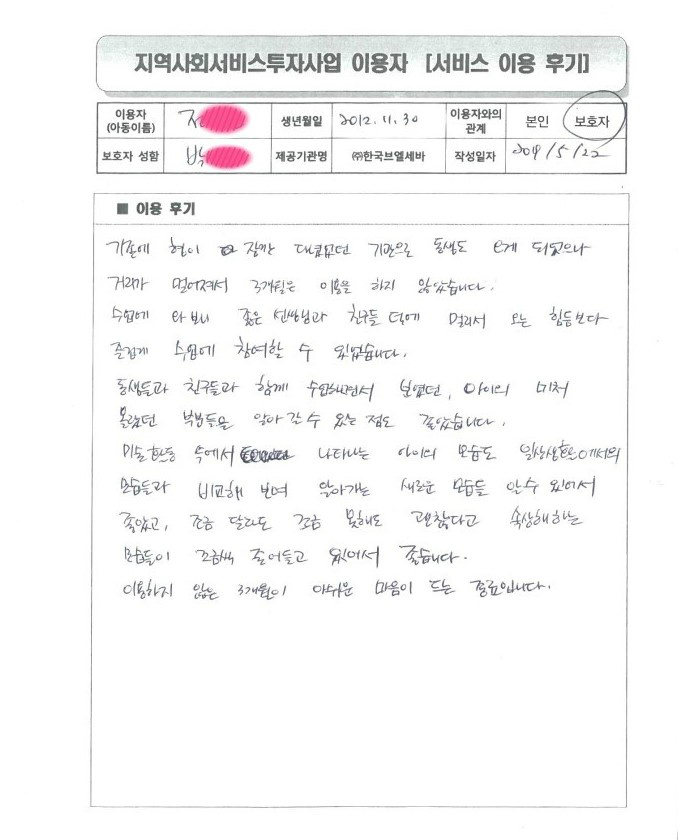 지역사회서비스투자사업 이용자 [서비스 이용 후기]
이용자 (아동이름) 생년월일 2012. 11. 30 이용자와의 관계 본인 보호자
보호자 성함 박 제공기관명 ㈜한국브엘세바 작성일자 2019/5/22
■ 이용 후기
기존에 형이 잠깐 기관으로 동생도 오게 되었으나
거리가 멀어져서 3개월은 이용을 하지 않았습니다.
수업에 와 보니 좋은 선생님과 친구들 덕에 멀리서 오는 힘듬보다
즐겁게 수업에 참여할 수 있었습니다.
동생들과 친구들과 함께 수업하면서 보였던, 아이의 미처
몰랐던 부분들을 알아 갈 수 있는 점도 좋았습니다.
미술활동 속에서 나타나는 아이의 모습도 일상생활에서의
모습들과 비교해 보며 알아가는 새로운 모습들 알 수 있어서
좋았고, 조금 달라도 조금 못해도 괜찮다고 속상해하는
모습들이 조금씩 줄어들고 있어서 좋습니다.
이용하지 않은 3개월이 아쉬운 마음이 드는 종료입니다.